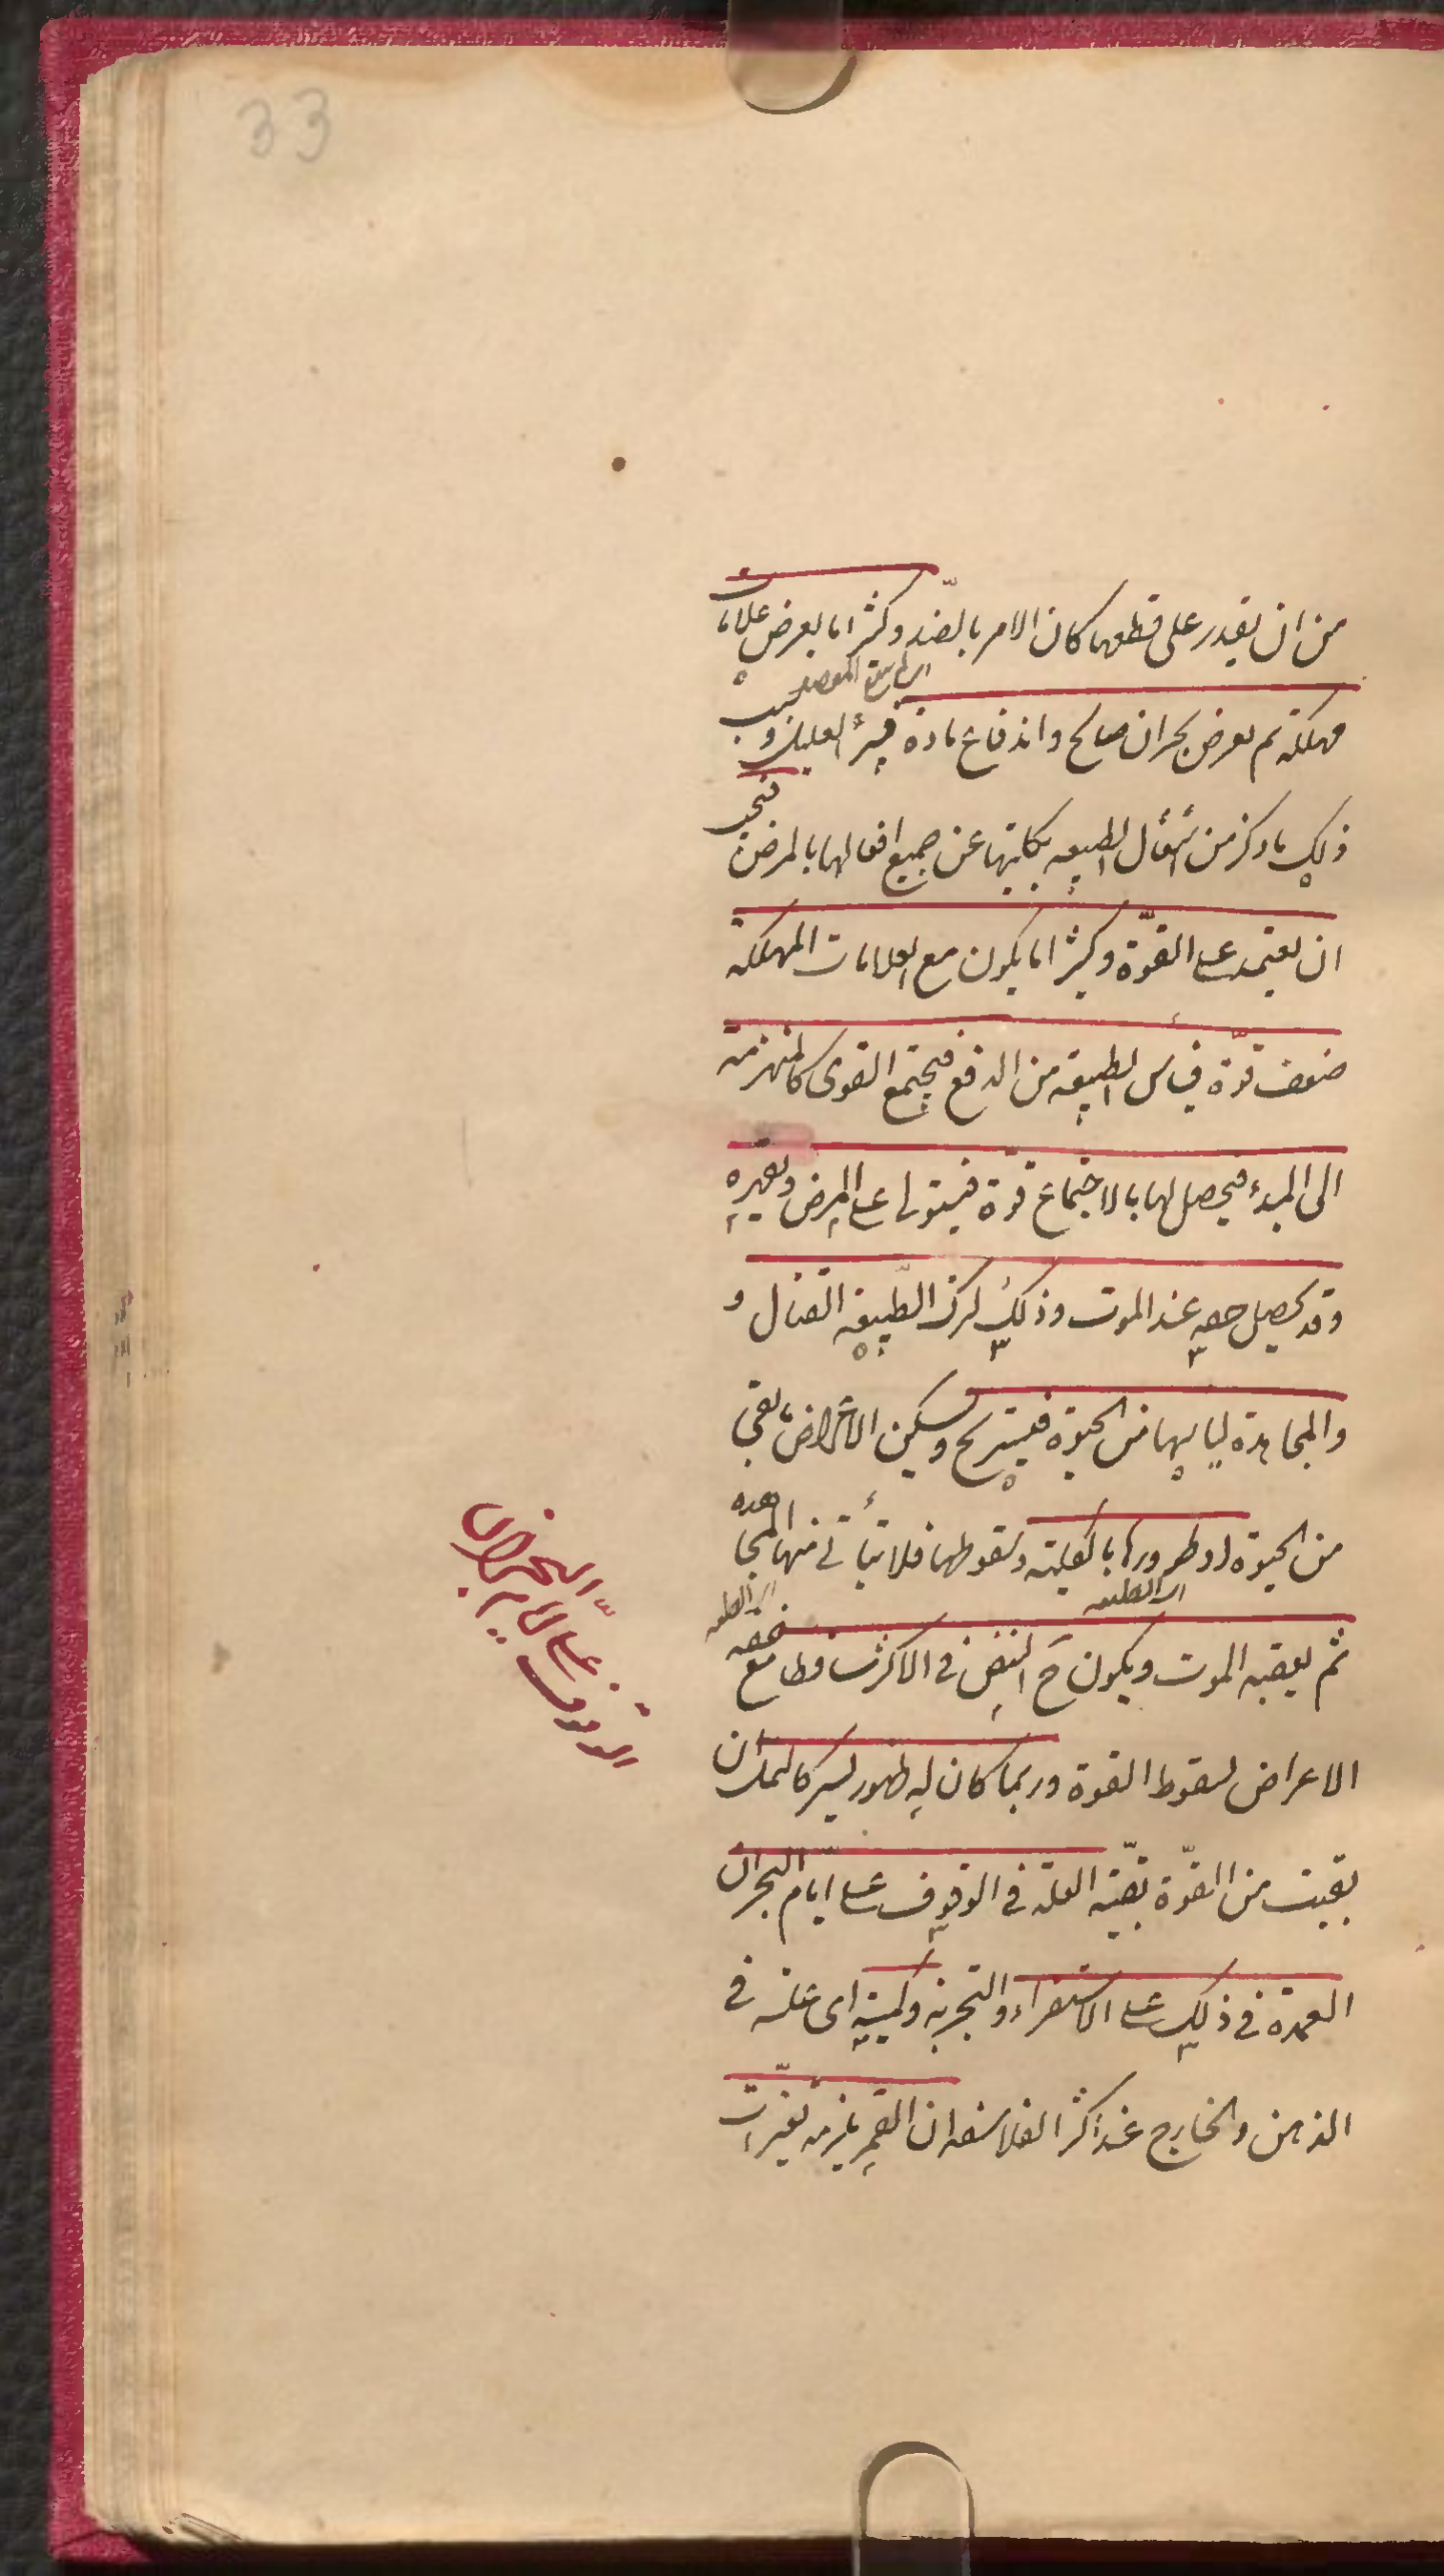 33
من ان يقدر على قطعها كان الامر بالضّد وكثيرا ما يعرض علامات
مهلكة ثم يعرض بحران صالح واندفاع مادة فيبرئ العليل وسبب
ذلك ما ذكر من اشتغال الطبيعه بكليتها عن جميع افعالها بالمرض فيجب
ان يعتمد على القوّة وكثيرا ما يكون مع العلامات المهلكة
ضعف قوّة فيأس الطبيعة من الدفع فيجتمع القوى كالمنهزمة
الى المبدء فيحصل لها بالاجتماع قوّة فيستولى على المرض ويقهره
وقد يحصل خفة عند الموت وذلك لترك الطّبيعة القتال و
والمجاهدة ليأسها من الحيوة فيستريح ويسكن الاعراض بقى
من الحيوة او ظهورها بالكلية وسقوطها فلا يتأتى منها المجاهده
اى الطبيعه
ثم يعقبه الموت ويكون ح النبض فى الاكثر ساقطا مع خفة
الاعراض لسقوط القوة وربما كان له ظهور يسير كالمك ان
بقيت من القوّة بقيّة العلة فى الوقوف على ايّام البحران
العمدة فى ذلك على الاستقراء والتجربة ولميته اى علته فى
الذهن والخارج عند اكثر الفلاسفه ان القمر يلزمه تغيّرات
الوقوف على ايّام البحران